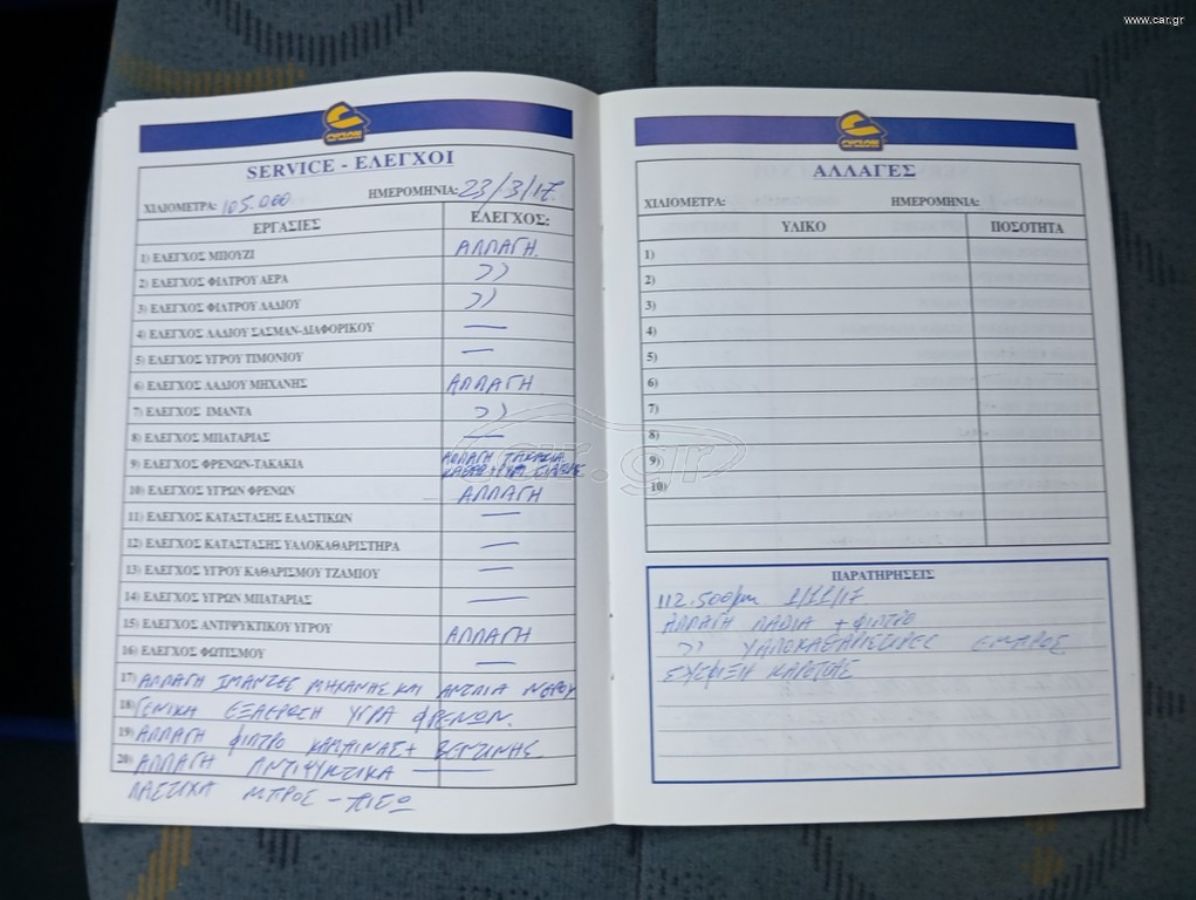 www.car.gr
CYCLON
SERVICE - ΕΛΕΓΧΟΙ
ΧΙΛΙΟΜΕΤΡΑ: 105.000 ΗΜΕΡΟΜΗΝΙΑ: 23/3/17.
ΕΡΓΑΣΙΕΣ ΕΛΕΓΧΟΣ:
1) ΕΛΕΓΧΟΣ ΜΠΟΥΖΙ ΑΛΛΑΓΗ.
2) ΕΛΕΓΧΟΣ ΦΙΛΤΡΟΥ ΑΕΡΑ ››
3) ΕΛΕΓΧΟΣ ΦΙΛΤΡΟΥ ΛΑΔΙΟΥ ››
4) ΕΛΕΓΧΟΣ ΛΑΔΙΟΥ ΣΑΣΜΑΝ-ΔΙΑΦΟΡΙΚΟΥ —
5) ΕΛΕΓΧΟΣ ΥΓΡΟΥ ΤΙΜΟΝΙΟΥ —
6) ΕΛΕΓΧΟΣ ΛΑΔΙΟΥ ΜΗΧΑΝΗΣ ΑΛΛΑΓΗ
7) ΕΛΕΓΧΟΣ ΙΜΑΝΤΑ ››
8) ΕΛΕΓΧΟΣ ΜΠΑΤΑΡΙΑΣ —
9) ΕΛΕΓΧΟΣ ΦΡΕΝΩΝ-ΤΑΚΑΚΙΑ ΑΛΛΑΓΗ ΤΑΚΑΚΙΑ
10) ΕΛΕΓΧΟΣ ΥΓΡΩΝ ΦΡΕΝΩΝ ΑΛΛΑΓΗ
11) ΕΛΕΓΧΟΣ ΚΑΤΑΣΤΑΣΗΣ ΕΛΑΣΤΙΚΩΝ —
12) ΕΛΕΓΧΟΣ ΚΑΤΑΣΤΑΣΗΣ ΥΑΛΟΚΑΘΑΡΙΣΤΗΡΑ —
13) ΕΛΕΓΧΟΣ ΥΓΡΟΥ ΚΑΘΑΡΙΣΜΟΥ ΤΖΑΜΙΟΥ —
14) ΕΛΕΓΧΟΣ ΥΓΡΩΝ ΜΠΑΤΑΡΙΑΣ —
15) ΕΛΕΓΧΟΣ ΑΝΤΙΨΥΚΤΙΚΟΥ ΥΓΡΟΥ ΑΛΛΑΓΗ
16) ΕΛΕΓΧΟΣ ΦΩΤΙΣΜΟΥ —
17) ΑΛΛΑΓΗ ΙΜΑΝΤΕΣ ΜΗΧΑΝΗΣ ΚΑΙ ΑΝΤΛΙΑ ΝΕΡΟΥ
18) ΓΕΝΙΚΗ ΕΞΑΕΡΩΣΗ ΥΓΡΑ ΦΡΕΝΩΝ.
19) ΑΛΛΑΓΗ ΦΙΛΤΡΟ ΚΑΜΠΙΝΑΣ + ΒΕΝΖΙΝΗΣ
20) ΑΛΛΑΓΗ ΑΝΤΙΨΥΚΤΙΚΑ —
ΛΑΣΤΙΧΑ ΜΠΡΟΣ - ΠΙΣΩ
CYCLON
ΑΛΛΑΓΕΣ
ΧΙΛΙΟΜΕΤΡΑ: ΗΜΕΡΟΜΗΝΙΑ:
ΥΛΙΚΟ ΠΟΣΟΤΗΤΑ
1)
2)
3)
4)
5)
6)
7)
8)
9)
10)
ΠΑΡΑΤΗΡΗΣΕΙΣ
112.500 1/11/17
ΑΛΛΑΓΗ ΛΑΔΙΑ + ΦΙΛΤΡΟ
›› ΥΑΛΟΚΑΘΑΡΙΣΤΗΡΕΣ ΕΜΠΡΟΣ
car.gr